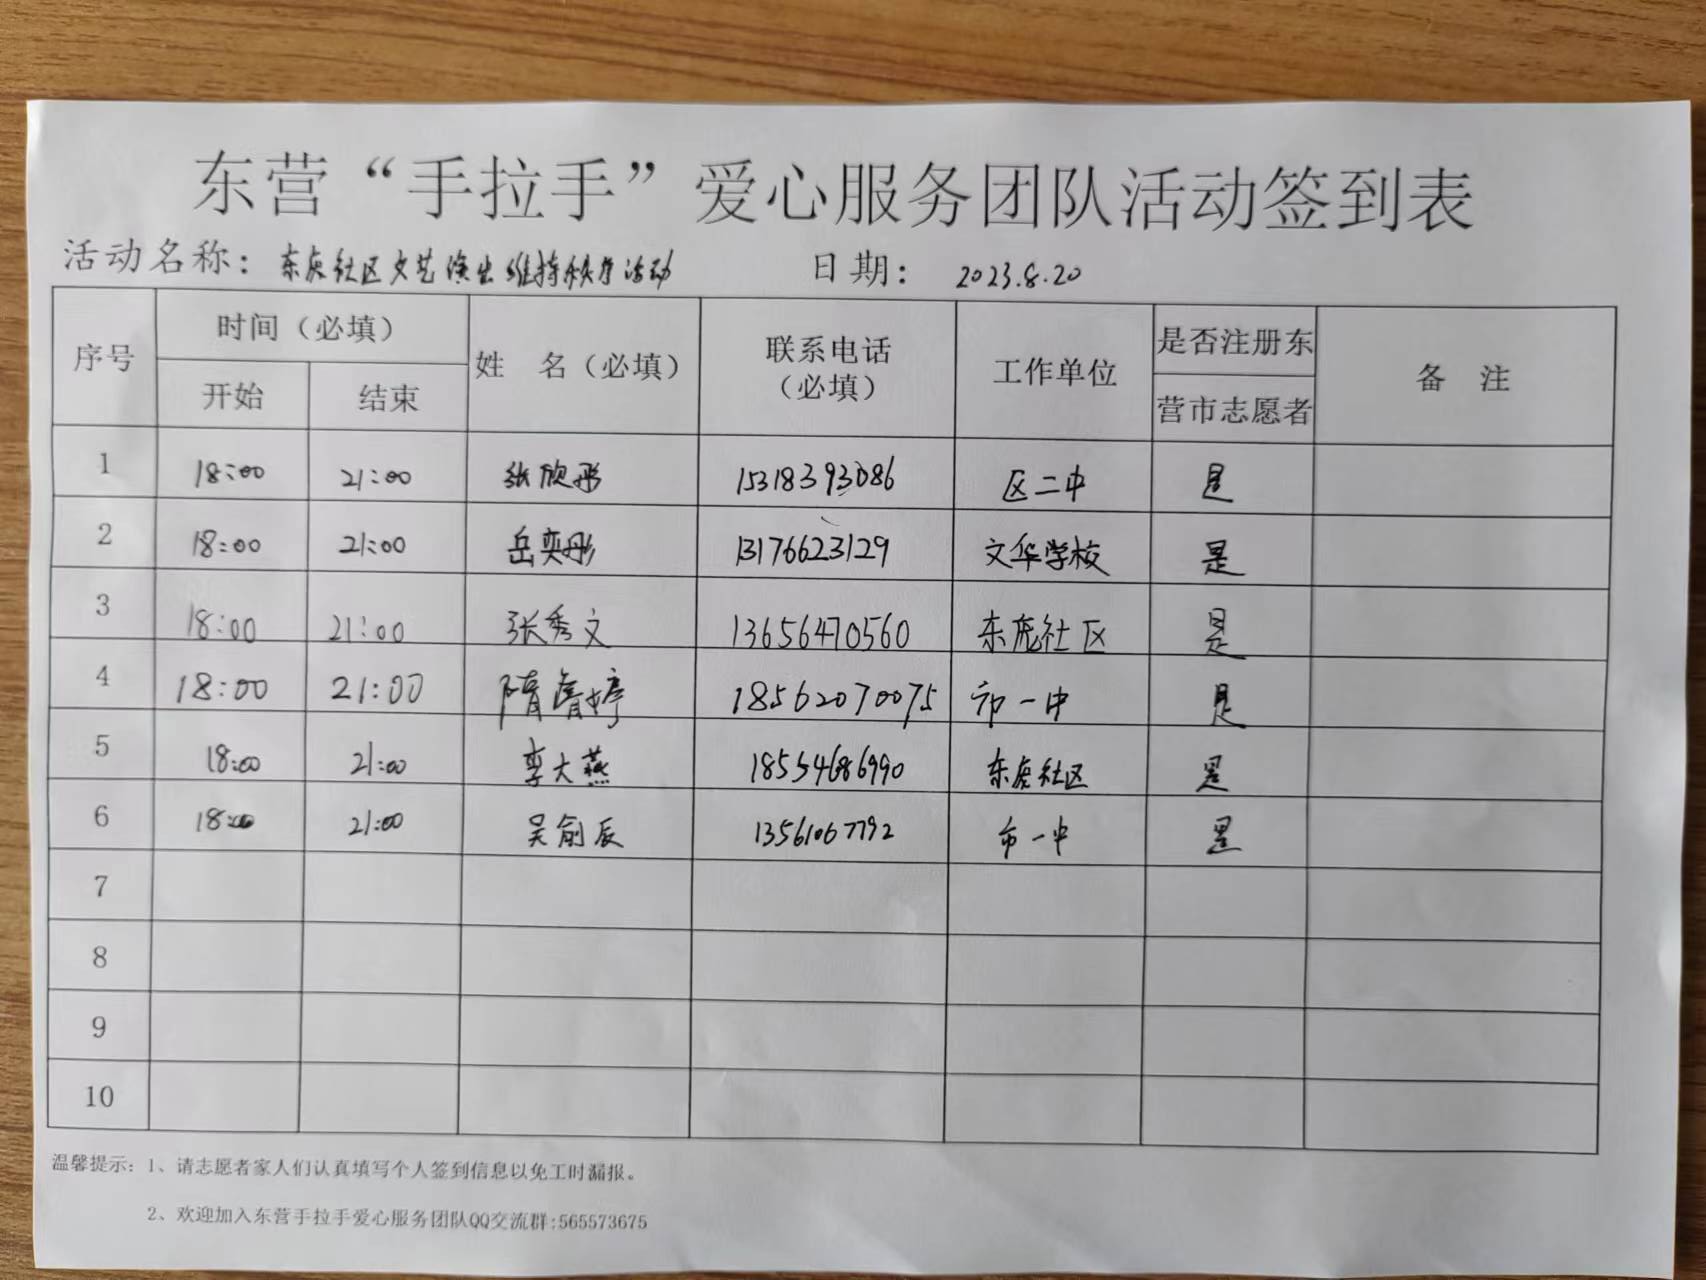 东营“手拉手”爱心服务团队活动签到表
活动名称：东虎社区文艺演出维持秩序活动 日期：2023.8.20
序号 时间（必填） 姓 名（必填） 联系电话（必填） 工作单位 是否注册东营市志愿者 备 注
开始 结束
1 18:00 21:00 张欣彤 15318393086 区二中 是
2 18:00 21:00 岳奕彤 13176623129 文华学校 是
3 18:00 21:00 张秀文 13656470560 东虎社区 是
4 18:00 21:00 隋睿婷 18562070075 市一中 是
5 18:00 21:00 李大燕 18554686990 东虎社区 是
6 18:00 21:00 吴俞辰 13561067792 市一中 是
7
8
9
10
温馨提示：1、请志愿者家人们认真填写个人签到信息以免工时漏报。
2、欢迎加入东营手拉手爱心服务团队QQ交流群:565573675